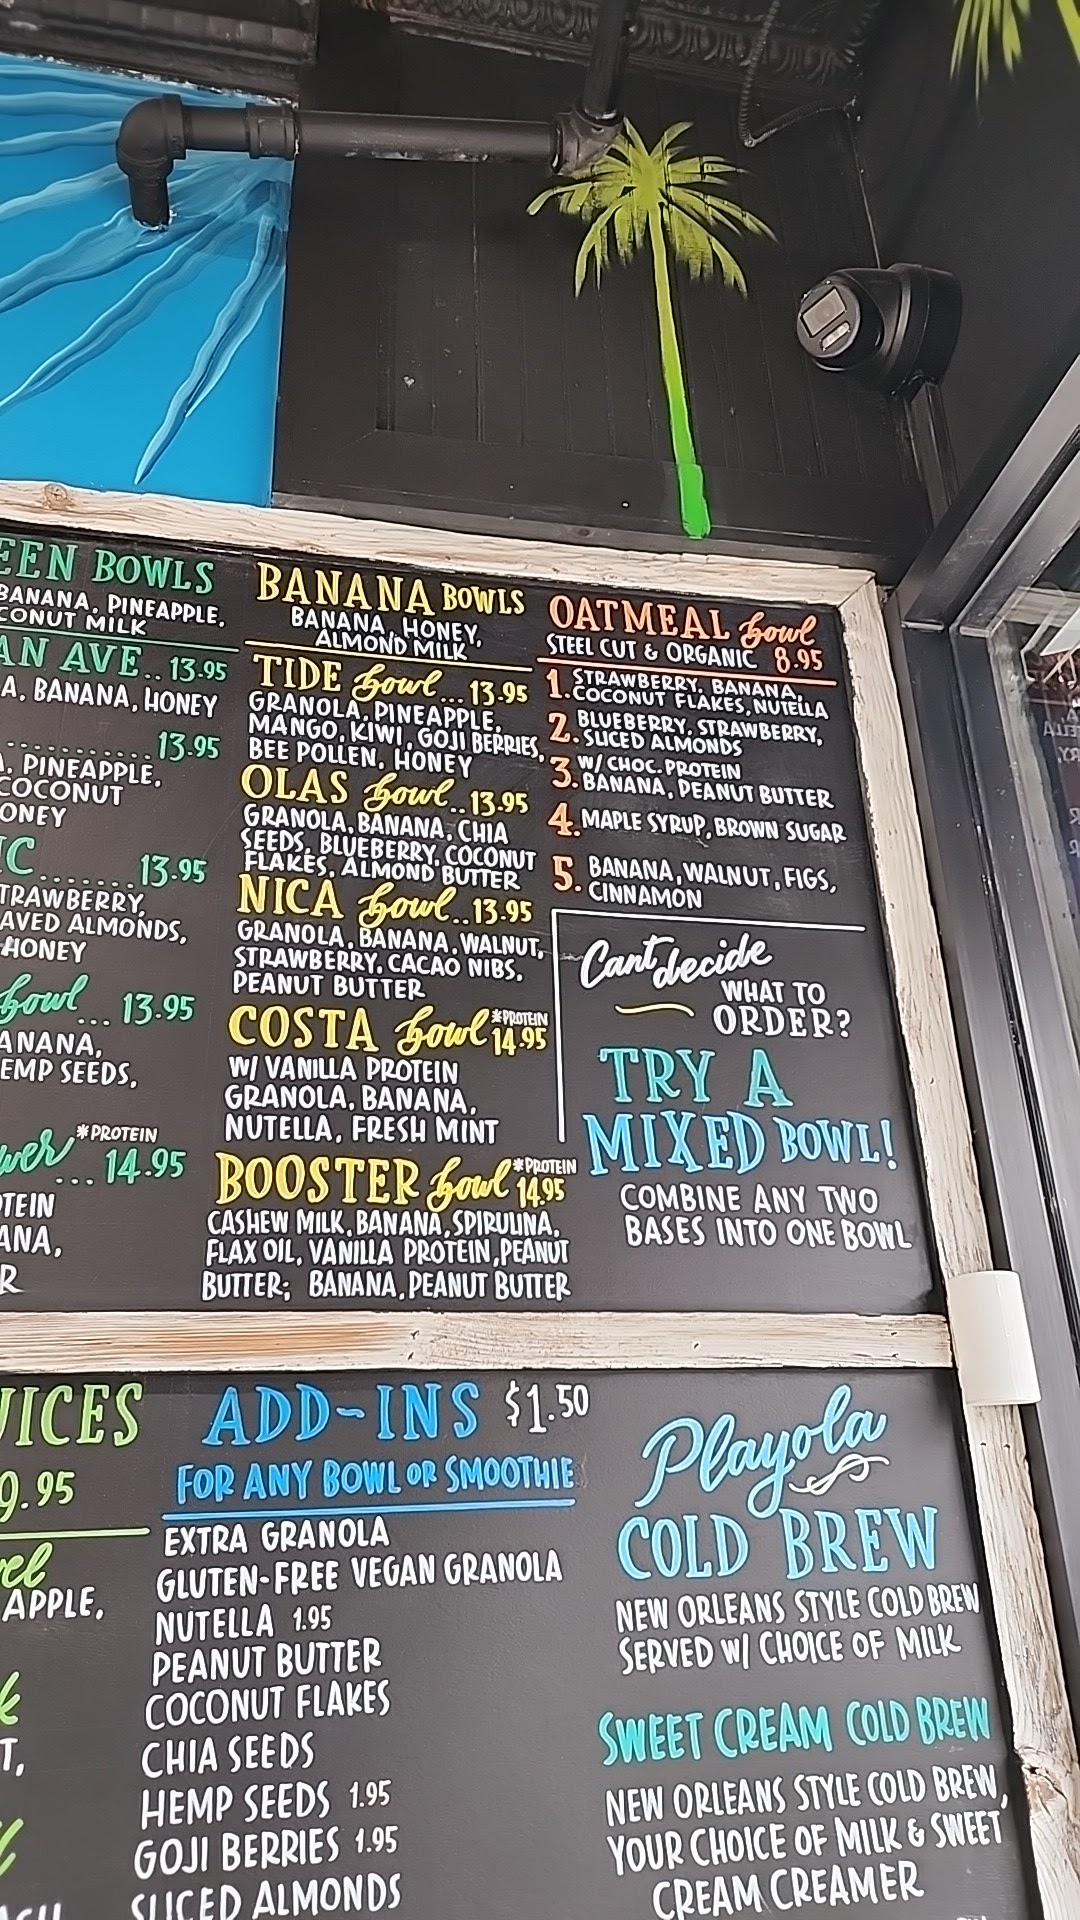 BOWLS
BANANA, PINEAPPLE,
MILK
AVE.. 13.95
BANANA, HONEY
............ 13.95
PINEAPPLE,
COCONUT
....... 13.95
HONEY
bowl... 13.95
SEEDS,
*PROTEIN
... 14.95
BANANA BOWLS
BANANA, HONEY,
ALMOND MILK
TIDE bowl... 13.95
GRANOLA, PINEAPPLE,
MANGO, KIWI, GOJI BERRIES,
BEE POLLEN, HONEY
OLAS bowl.. 13.95
GRANOLA, BANANA, CHIA
SEEDS, BLUEBERRY, COCONUT
FLAKES, ALMOND BUTTER
NICA bowl.. 13.95
GRANOLA, BANANA, WALNUT,
STRAWBERRY, CACAO NIBS,
PEANUT BUTTER
COSTA bowl *PROTEIN 14.95
W/ VANILLA PROTEIN
GRANOLA, BANANA,
NUTELLA, FRESH MINT
BOOSTER bowl *PROTEIN 14.95
CASHEW MILK, BANANA, SPIRULINA,
FLAX OIL, VANILLA PROTEIN, PEANUT
BUTTER; BANANA, PEANUT BUTTER
OATMEAL bowl
STEEL CUT & ORGANIC 8.95
1. STRAWBERRY, BANANA,
COCONUT FLAKES, NUTELLA
2. BLUEBERRY, STRAWBERRY,
SLICED ALMONDS
3. W/ CHOC. PROTEIN
BANANA, PEANUT BUTTER
4. MAPLE SYRUP, BROWN SUGAR
5. BANANA, WALNUT, FIGS,
CINNAMON
Cant decide
WHAT TO
ORDER?
TRY A
MIXED BOWL!
COMBINE ANY TWO
BASES INTO ONE BOWL
9.95
ADD-INS $1.50
FOR ANY BOWL OR SMOOTHIE
EXTRA GRANOLA
GLUTEN-FREE VEGAN GRANOLA
NUTELLA 1.95
PEANUT BUTTER
COCONUT FLAKES
CHIA SEEDS
HEMP SEEDS 1.95
GOJI BERRIES 1.95
SLICED ALMONDS
Playola
COLD BREW
NEW ORLEANS STYLE COLD BREW
SERVED W/ CHOICE OF MILK
SWEET CREAM COLD BREW
NEW ORLEANS STYLE COLD BREW,
YOUR CHOICE OF MILK & SWEET
CREAM CREAMER